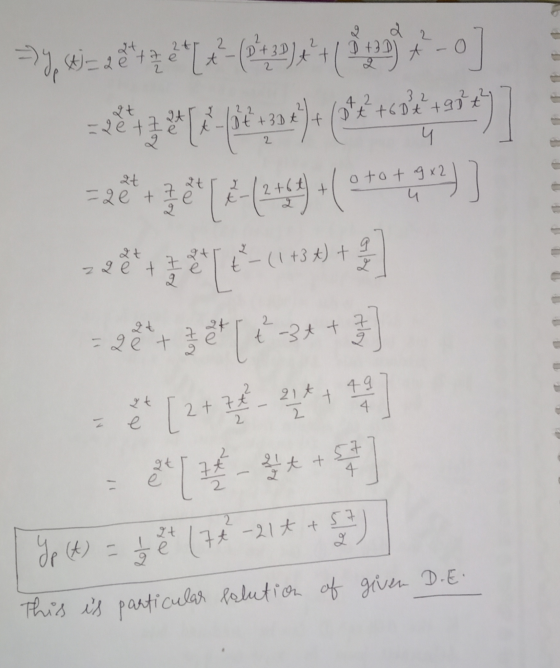 ⇒ y_p(t) = 2e^{2t} + 7/2 e^{2t} [ t^2 - ((D^2+3D)/2) t^2 + ((D^2+3D)/2)^2 t^2 - 0 ]
= 2e^{2t} + 7/2 e^{2t} [ t^2 - ((D^2t^2 + 3Dt^2)/2) + ((D^4t^2 + 6D^3t^2 + 9D^2t^2)/4) ]
= 2e^{2t} + 7/2 e^{2t} [ t^2 - ((2+6t)/2) + ((0+0+9×2)/4) ]
= 2e^{2t} + 7/2 e^{2t} [ t^2 - (1+3t) + 9/2 ]
= 2e^{2t} + 7/2 e^{2t} [ t^2 - 3t + 7/2 ]
= e^{2t} [ 2 + 7t^2/2 - 21t/2 + 49/4 ]
= e^{2t} [ 7t^2/2 - 21/2 t + 57/4 ]
y_p(t) = 1/2 e^{2t} ( 7t^2 - 21t + 57/2 )
This is particular solution of given D.E.